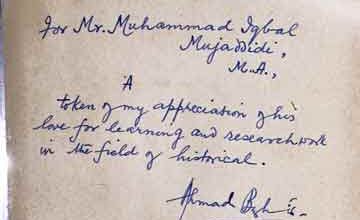 For Mr. Muhammad Iqbal
Mujaddidi,
M.A.,
A
token of my appreciation of his
love for learning and research work
in the field of historical.
Ahmad